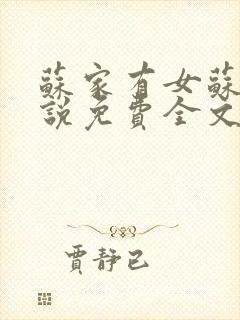 蘇家有女蘇
說免費全文
賈靜已